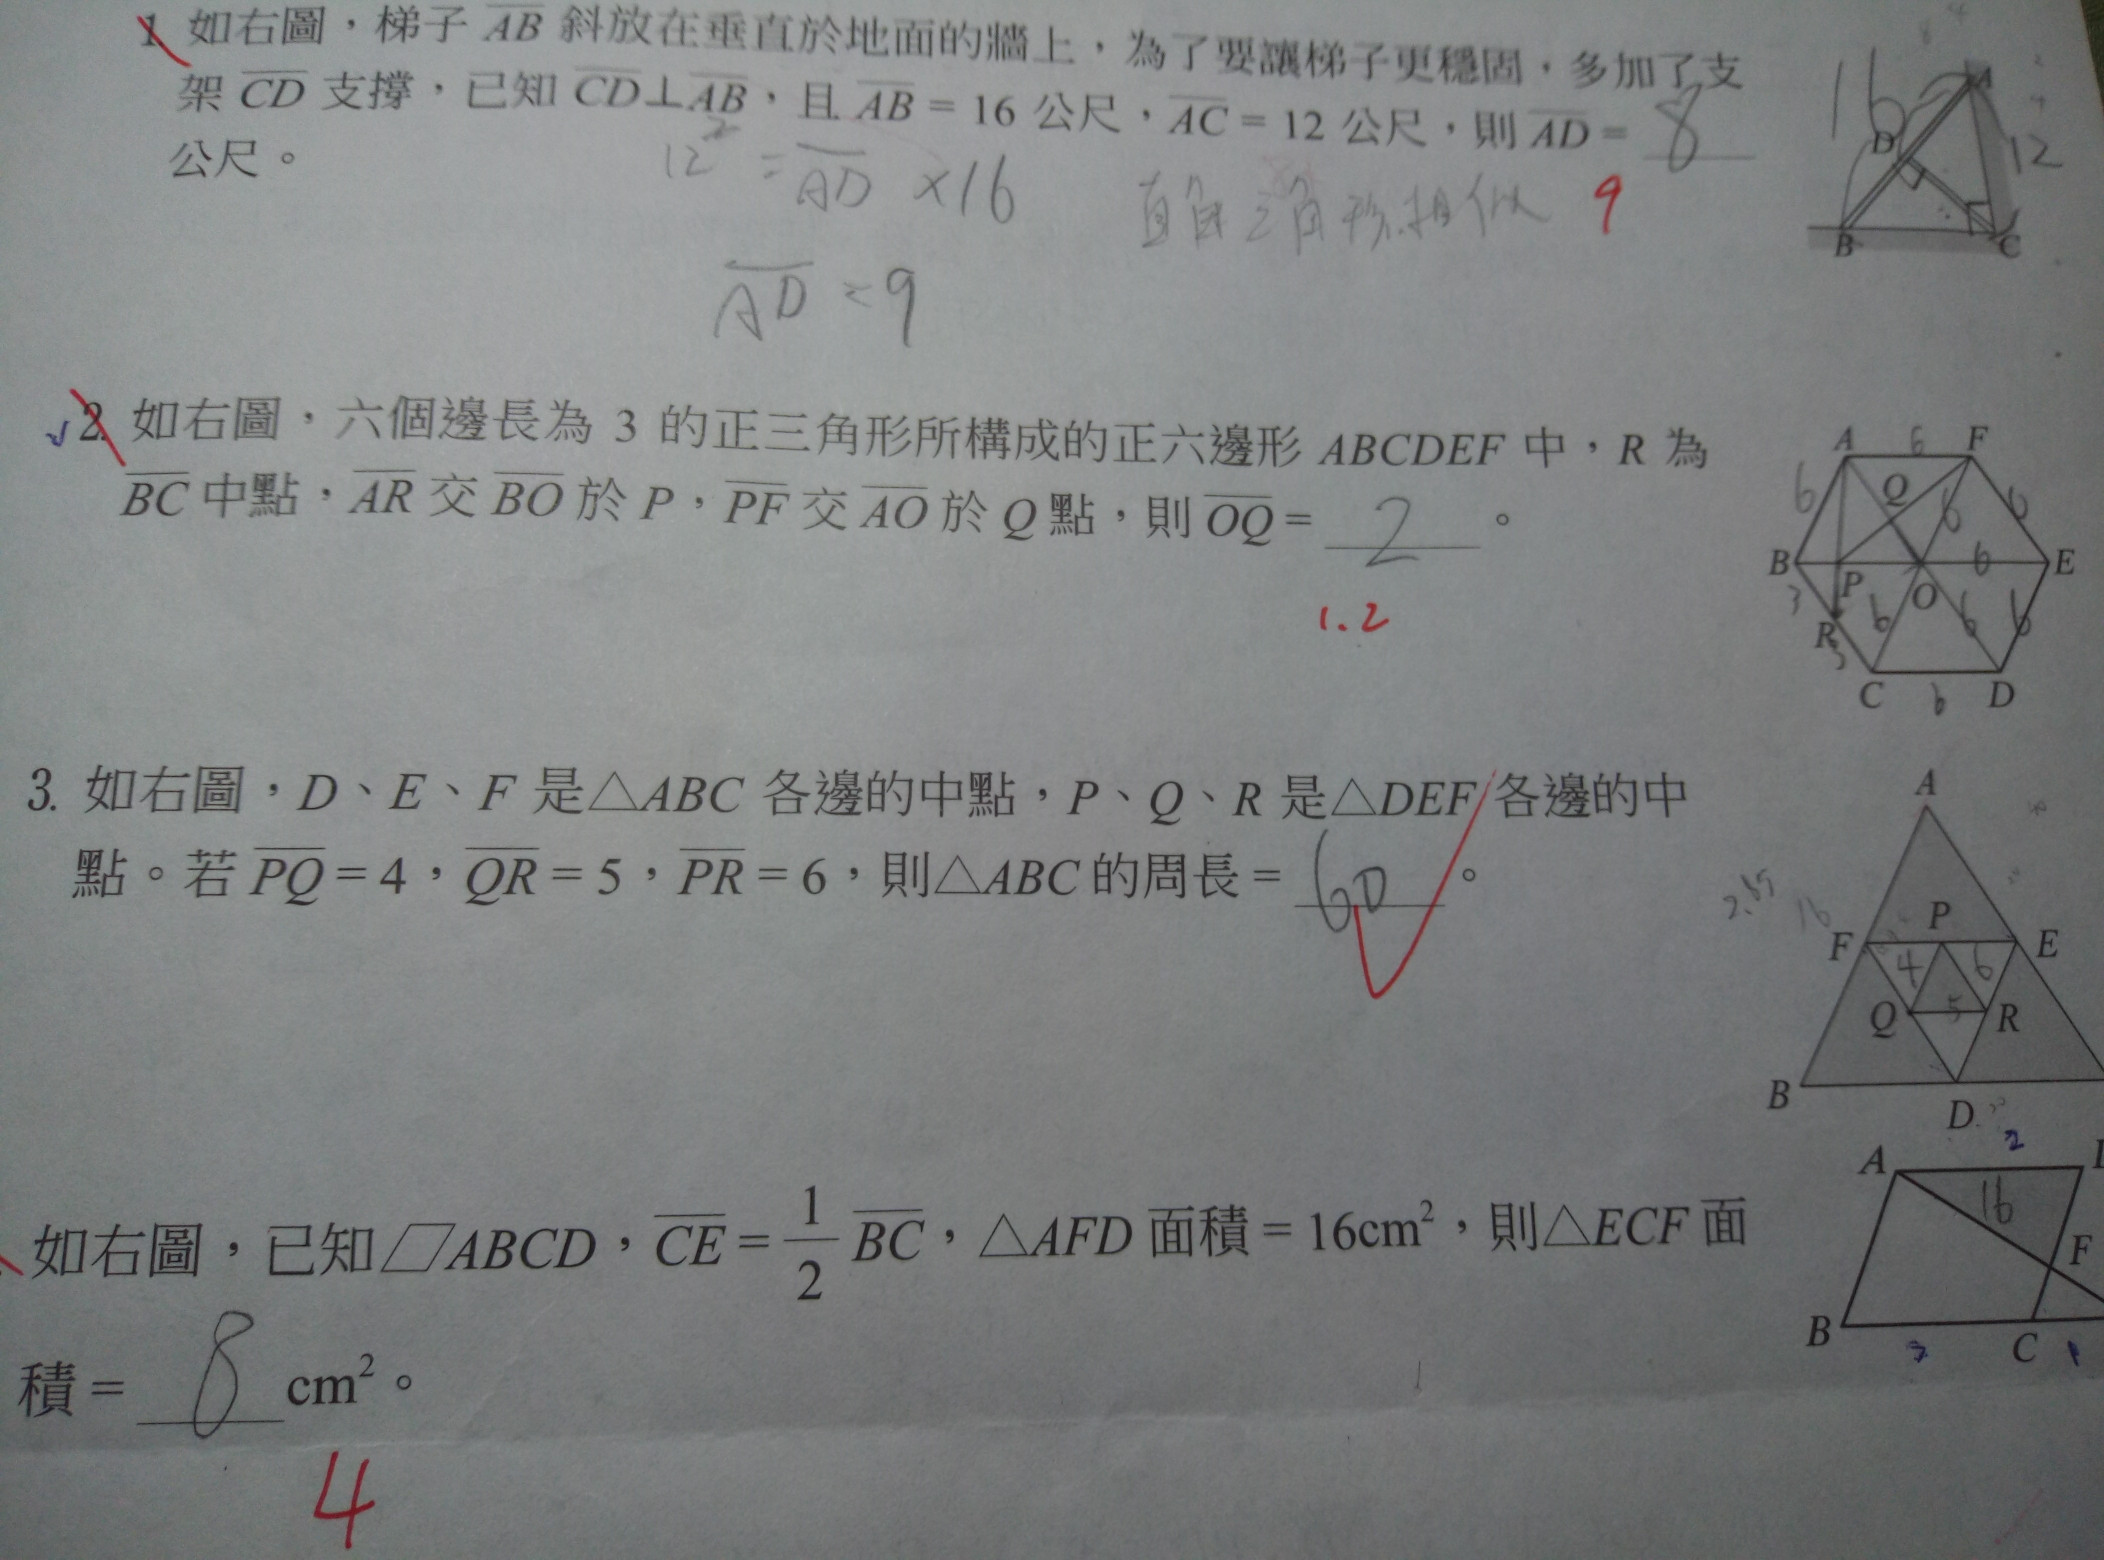 1. 如右圖，梯子 AB 斜放在垂直於地面的牆上，為了要讓梯子更穩固，多加了支
架 CD 支撐，已知 CD⊥AB，且 AB = 16 公尺，AC = 12 公尺，則 AD = 8
公尺。
12² = AD × 16
直角三角形相似 9
AD = 9
16
A
D
12
B
C
2. 如右圖，六個邊長為 3 的正三角形所構成的正六邊形 ABCDEF 中，R 為
BC 中點，AR 交 BO 於 P，PF 交 AO 於 Q 點，則 OQ = 2 。
1.2
A 6 F
6 Q 6 6
B P O 6 E
3 R 3 6 6 6
C 6 D
3. 如右圖，D、E、F 是△ABC 各邊的中點，P、Q、R 是△DEF 各邊的中
點。若 PQ = 4，QR = 5，PR = 6，則△ABC 的周長 = 60 。
A
16
F P E
4 6
Q 5 R
B D
如右圖，已知▱ABCD，CE = 1/2 BC，△AFD 面積 = 16cm²，則△ECF 面
積 = 8 cm²。
4
2
A
16
F
B C 1